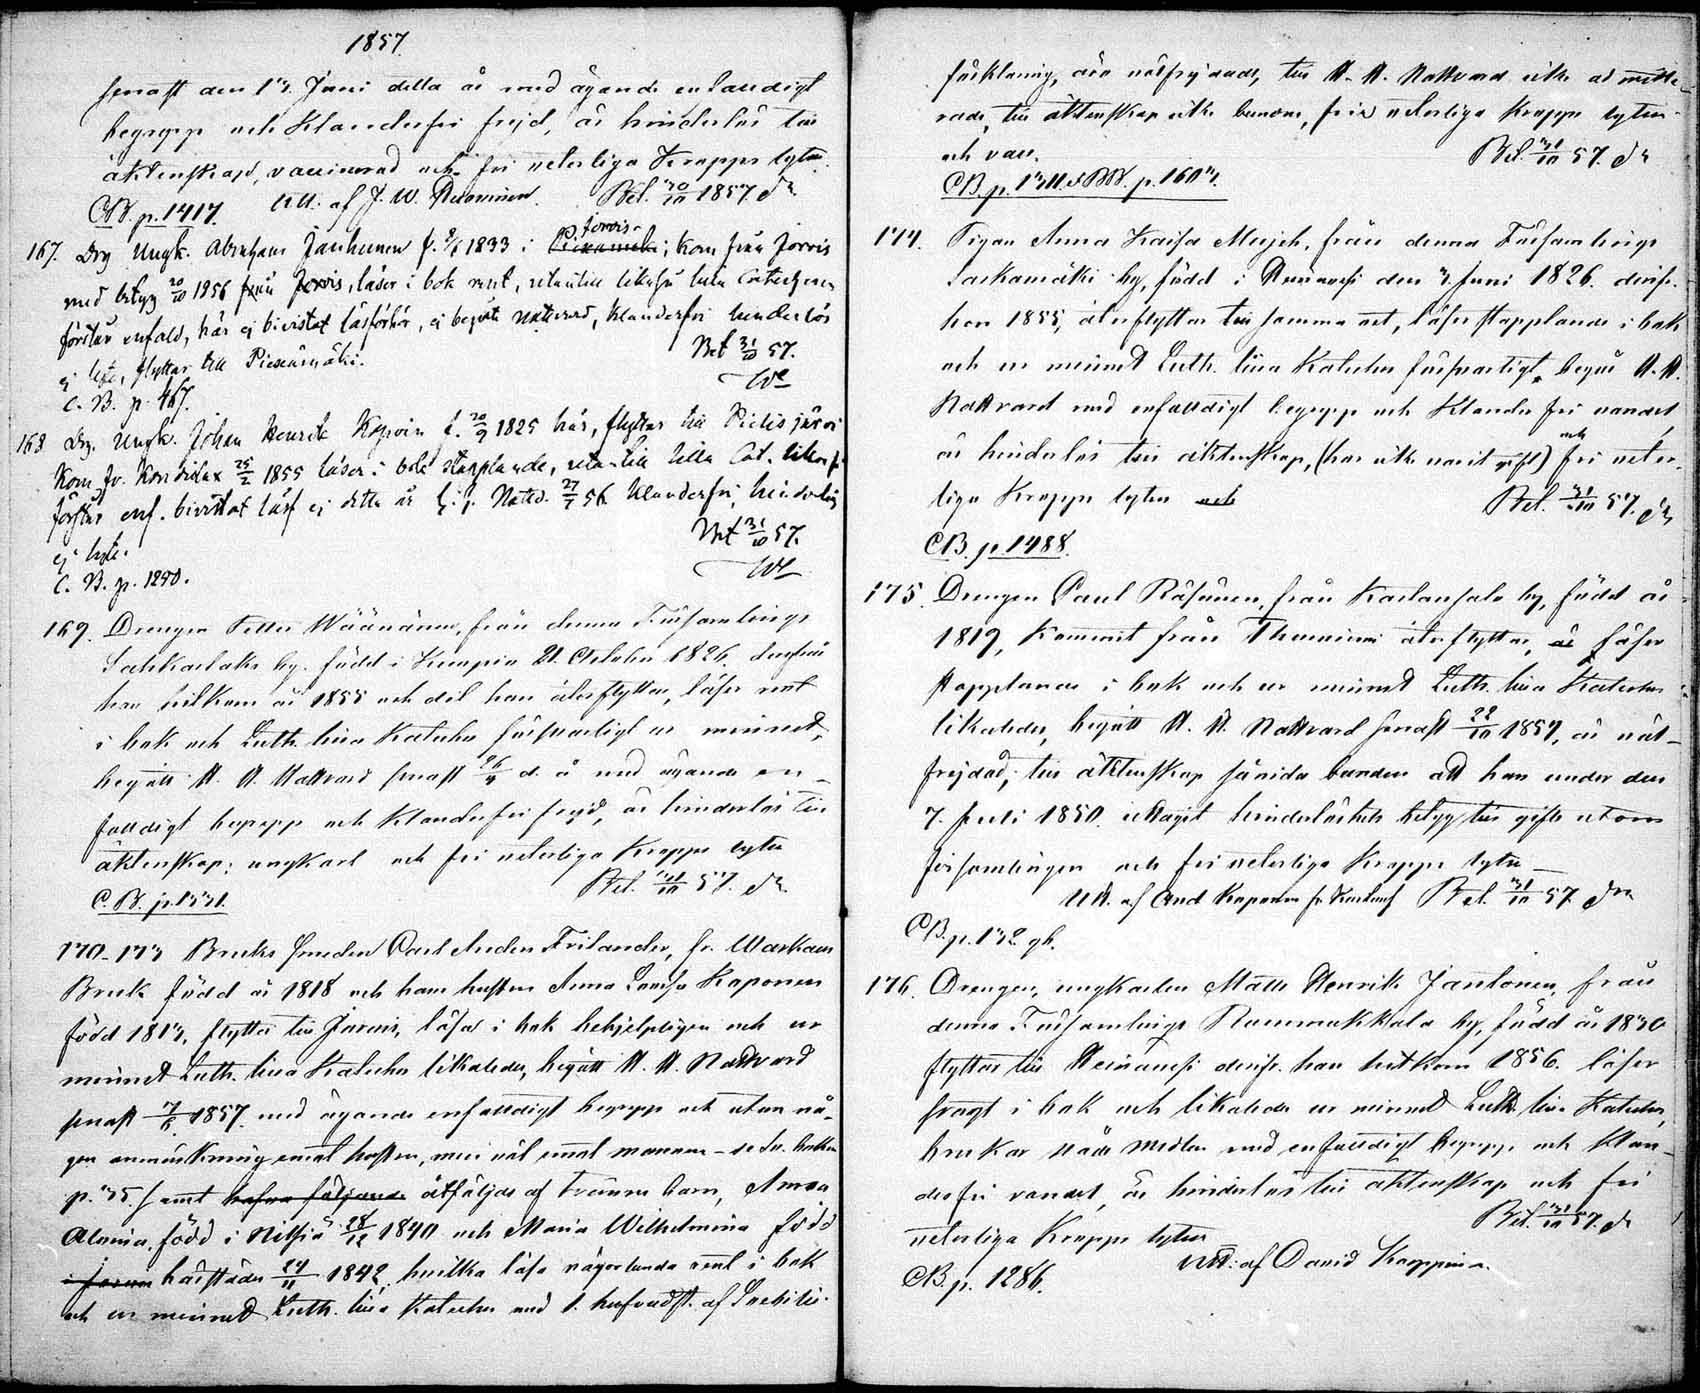 1857
senast den 13. Juni detta år med ägande enfaldigt
begrepp och klanderfri frejd, är hinderlös till
äktenskap, vaccinerad och fri veterliga kropps lyten.
CB. p. 1417. Utt. af J. W. Bet. 30/10 1857.
167. Drg Ungk. Abraham Janhunen f. 1833 i p. Jorois; kom från Jorois
med betyg 20/10 1856 från Jorois, läser i bok rent, utantill likaså lilla Catechesen
förstår enfald, här ej bivistat läsförhör, ej begått nattvard, klanderfri hinderlös
ej lyte, flyttar till Pieksämäki. Bet 31/10 57.
C. B. p. 467.
168 Drg. Ungk. Johan Henrik f. 20/9 1825 här, flyttar till Pielisjärvi
Kom fr. Kontiolax 25/2 1855 läser i bok stapplande, utantill lilla Cat. likaså
förstår enf. bivistat läsf ej detta år H. H. Nattv. 27/7 56 klanderfri, hinderlös
ej lyte. Bet 31/10 57.
C. B. p. 1290.
169. Drengen Petter Väänänen, från denna Församlings
by, född i Kuopio 21. October 1826. derifrån
han hitkom år 1855 och dit han återflyttar, läser rent
i bok och Luth. lilla Kateches försvarligt ur minnet,
begått H. H. Nattvard senast 26/4 d. å med ägande en-
faldigt begrepp och klanderfri frejd, är hinderlös till
äktenskap: ungkarl och fri veterliga kropps lyten
C. B. p. 1531. Bet. 31/10 57.
170-173 Bruks smeden Carl Anders Frilander, fr. Warkaus
Bruk född år 1818 och hans hustru Anna Lovisa Kaponen
född 1813, flyttar till Jorois, läser i bok behjelpligen och ur
minnet Luth. lilla Kateches likaledes, begått H. H. Nattvard
senast 1857. med ägande enfaldigt begrepp och utan nå-
gon anmärkning emot hustrun, men väl emot mannen - se
p. 35. samt hafva följande åtföljas af tvänne barn, Anna
född i Nilsiä 28/12 1840 och Maria Wilhelmina född
härstädes 24/11 1842, hvilka läsa någorlunda rent i bok
och ur minnet Luth. lilla Kateches med 1. hufvudst. af
förklaring, äro välfrejdade, till H. H. Nattvard icke admitte-
rade, till äktenskap icke bundna, fria veterliga kropps lyten
och vacc. Bet. 31/10 57.
CB. p. 1311. & BB. p. 1603.
174. Pigan Anna Kaisa från denna Församlings
by, född i den 3. Juni 1826. derifr.
hon 1855, återflyttar till samma ort, läser stapplande i bok
och ur minnet Luth. lilla Kateches försvarligt, begår H. H.
Nattvard med enfaldigt begrepp och klander fri vandel,
är hinderlös till äktenskap, (har icke varit gift) och fri veter-
liga kropps lyten och Bet. 31/10 57.
CB. p. 1488.
175. Drengen Paul Räsänen, från by, född år
1819, kommit från återflyttar, är läser
stapplande i bok och ur minnet Luth. lilla Kateches
likaledes, begått H. H. Nattvard senast 22/10 1857, är väl-
frejdad; till äktenskap sånida bunden att han under den
7. Juli 1850. uttagit hinderlöshets betyg till gifte utom
församlingen och fri veterliga kropps lyten -
Utt. af And Kaponen fr. Bet. 31/10 57
CB. p. 132. gb.
176. Drengen, ungkarlen Matts Henrik Jantonen, från
denna Församlings by, född år 1830
flyttar till derifr. han hitkom 1856. läser
svagt i bok och likaledes ur minnet Luth. lilla Kateches,
brukar nåde medlen med enfaldigt begrepp och klan-
derfri vandel, är hinderlös till äktenskap och fri
veterliga kropps lyten Bet. 31/10 57.
Utt: af David Karppinen.
CB. p. 1286.